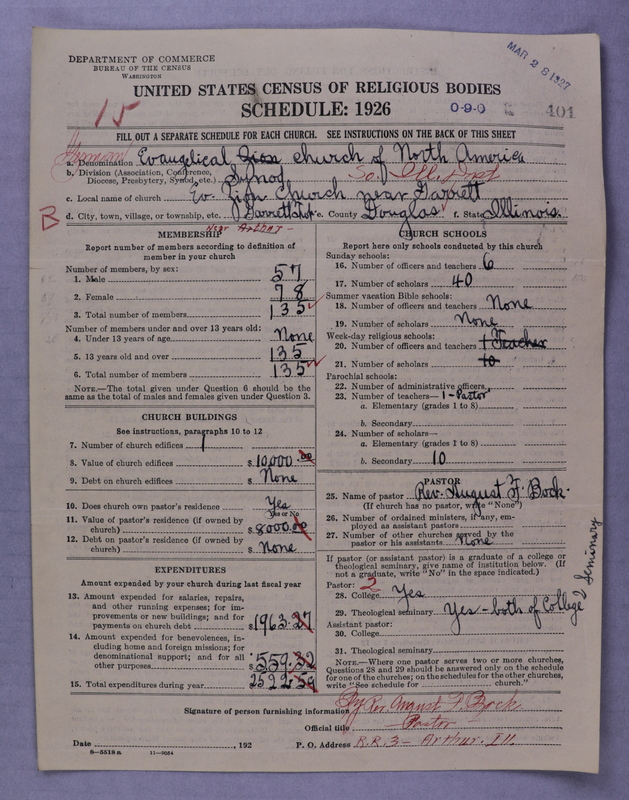 DEPARTMENT OF COMMERCE
BUREAU OF THE CENSUS
WASHINGTON
MAR 28 1927
UNITED STATES CENSUS OF RELIGIOUS BODIES
SCHEDULE: 1926
15
0-9-0
101
FILL OUT A SEPARATE SCHEDULE FOR EACH CHURCH. SEE INSTRUCTIONS ON THE BACK OF THIS SHEET
German
a. Denomination Evangelical church of North America
b. Division (Association, Conference, Diocese, Presbytery, Synod, etc.) Synod So. Ill. Dist
c. Local name of church Ev. Zion Church near Garrett
B
d. City, town, village, or township, etc. Garrett Twp e. County Douglas f. State Illinois.
near Arthur -
MEMBERSHIP
Report number of members according to definition of
member in your church
Number of members, by sex:
1. Male 57
2. Female 78
3. Total number of members 135
Number of members under and over 13 years old:
4. Under 13 years of age None
5. 13 years old and over 135
6. Total number of members 135
NOTE.—The total given under Question 6 should be the
same as the total of males and females given under Question 3.
CHURCH BUILDINGS
See instructions, paragraphs 10 to 12
7. Number of church edifices 1
8. Value of church edifices $ 10,000.00
9. Debt on church edifices $ None
10. Does church own pastor's residence Yes
Yes or No
11. Value of pastor's residence (if owned by
church) $ 8000.00
12. Debt on pastor's residence (if owned by
church) $ None
EXPENDITURES
Amount expended by your church during last fiscal year
13. Amount expended for salaries, repairs,
and other running expenses; for im-
provements or new buildings; and for
payments on church debt $ 1963.27
14. Amount expended for benevolences, in-
cluding home and foreign missions; for
denominational support; and for all
other purposes $ 559.32
15. Total expenditures during year 2522.59
CHURCH SCHOOLS
Report here only schools conducted by this church
Sunday schools:
16. Number of officers and teachers 6
17. Number of scholars 40
Summer vacation Bible schools:
18. Number of officers and teachers None
19. Number of scholars None
Week-day religious schools:
20. Number of officers and teachers 1 Teacher
21. Number of scholars 10
Parochial schools:
22. Number of administrative officers
23. Number of teachers— 1-Pastor
a. Elementary (grades 1 to 8)
b. Secondary
24. Number of scholars—
a. Elementary (grades 1 to 8)
b. Secondary 10
PASTOR
25. Name of pastor Rev. August F. Bock
(If church has no pastor, write "None")
26. Number of ordained ministers, if any, em-
ployed as assistant pastors
27. Number of other churches served by the
pastor or his assistants None
If pastor (or assistant pastor) is a graduate of a college or
theological seminary, give name of institution below. (If
not a graduate, write "No" in the space indicated.)
Pastor: 2
28. College Yes
29. Theological seminary Yes - both of College & Seminary
Assistant pastor:
30. College
31. Theological seminary
NOTE.—Where one pastor serves two or more churches,
Questions 28 and 29 should be answered only on the schedule
for one of the churches; on the schedules for the other churches,
write "See schedule for church."
Signature of person furnishing information By Rev. August F. Bock
Official title Pastor
Date , 192 P. O. Address R.R.3 - Arthur. Ill.
8—5518 a 11—9054